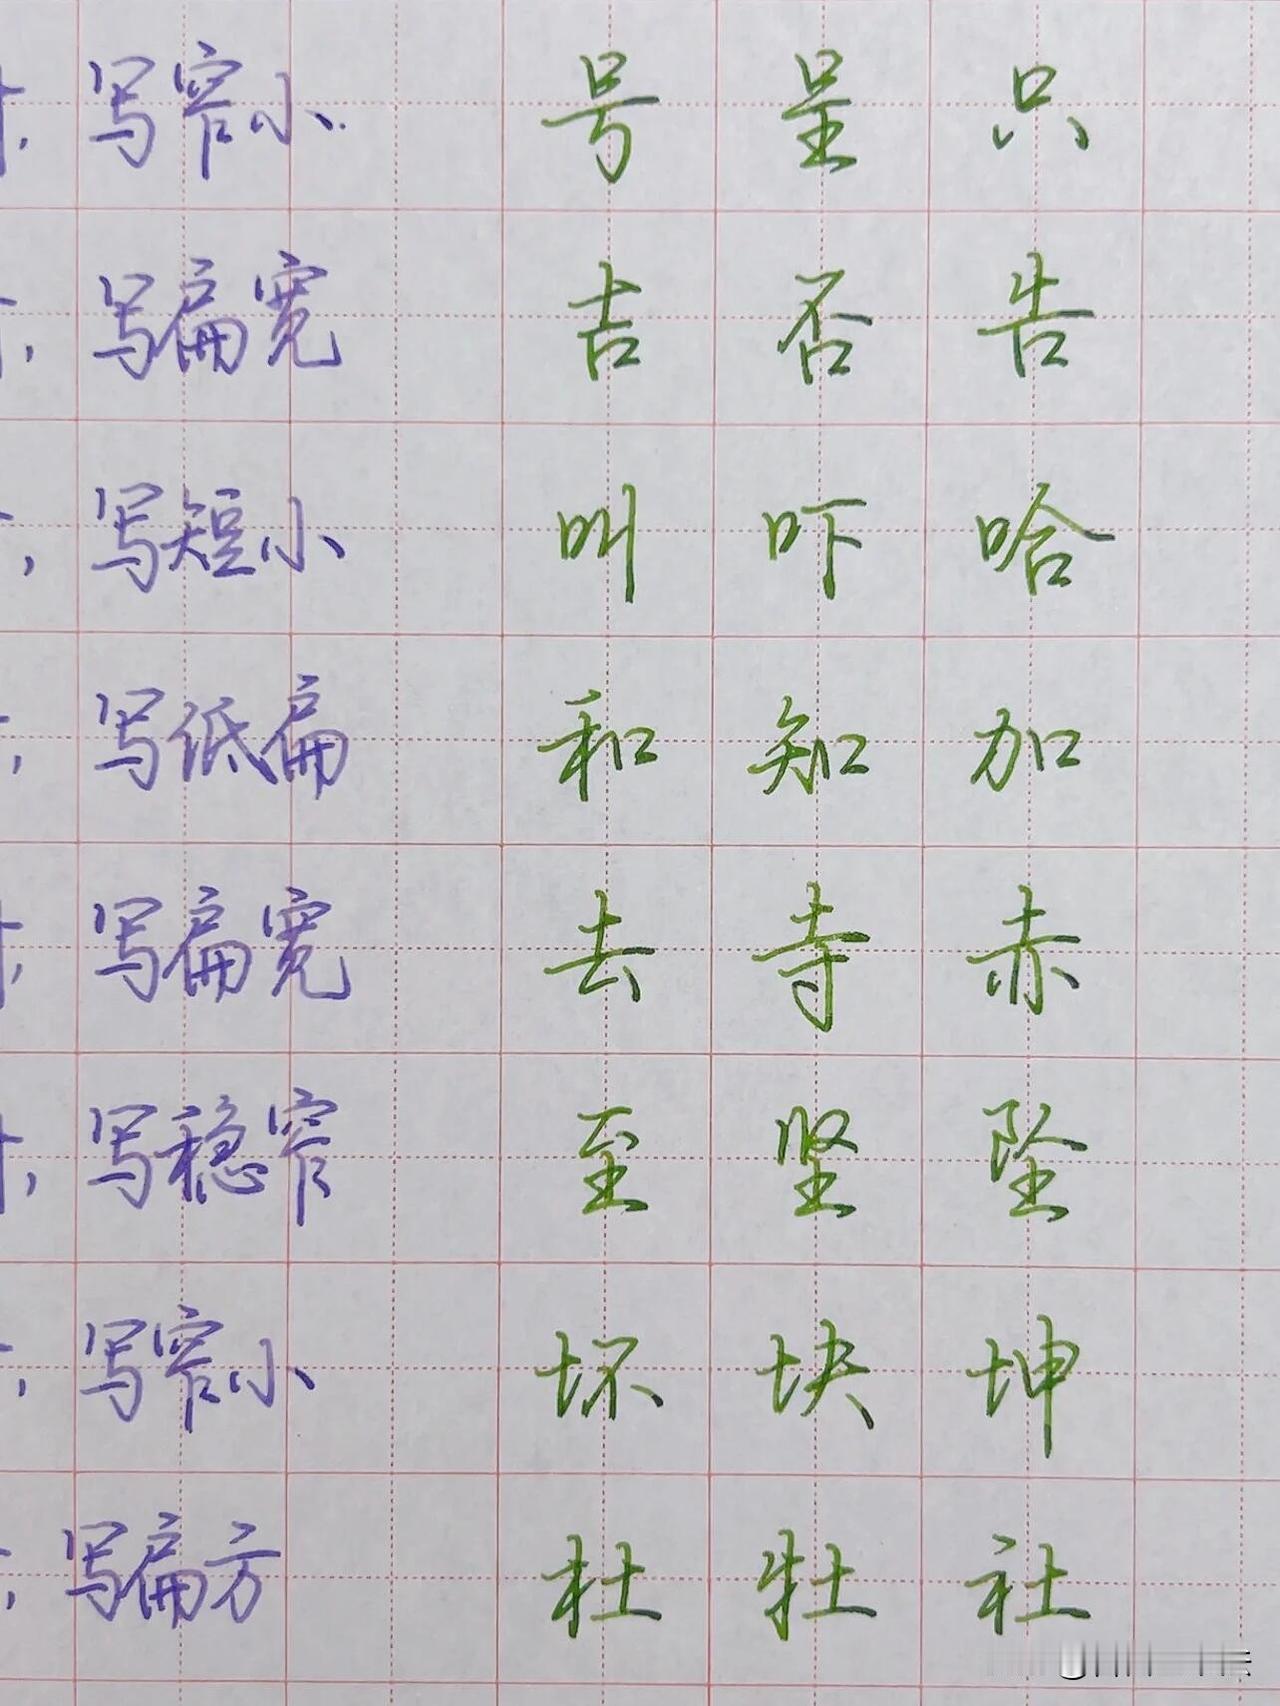 ，写窄小 号 呈 只
，写扁宽 吉 否 告
，写短小 叫 吓 哈
，写低扁 和 知 加
，写扁宽 去 寺 赤
，写稳窄 至 坚 坠
，写窄小 坏 块 坤
，写扁方 杜 牡 社